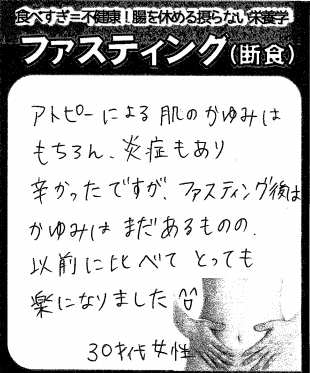 食べすぎ=不健康！腸を休める摂らない栄養学
ファスティング(断食)
アトピーによる肌のかゆみは
もちろん、炎症もあり
辛かったですが、ファスティング後は
かゆみはまだあるものの、
以前に比べてとっても
楽になりました
30才代女性